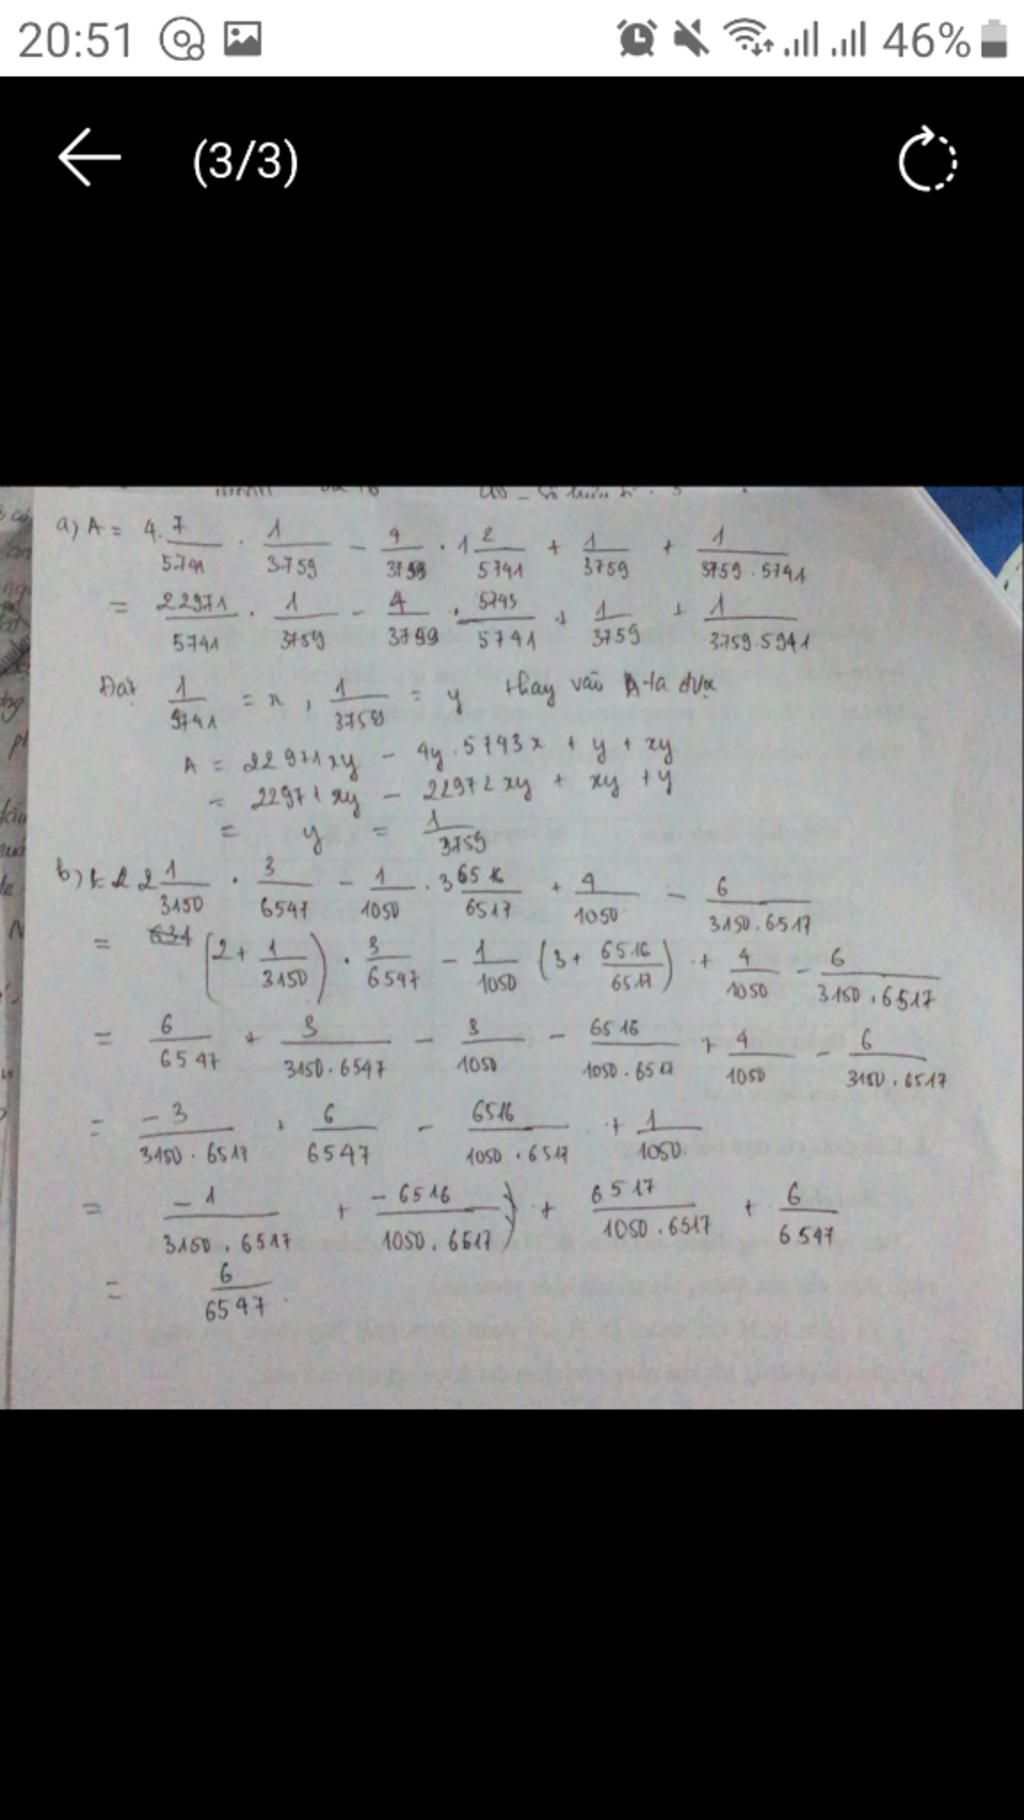 20:51 46%
(3/3)
a) A = 4. 7/5741 . 1/3759 - 4/3759 . 1 2/5741 + 1/3759 + 1/3759.5741
= 22971/5741 . 1/3759 - 4/3759 . 5743/5741 + 1/3759 + 1/3759.5941
Đặt 1/5741 = x, 1/3759 = y thay vào A ta được
A = 22971xy - 4y.5743x + y + xy
= 22971xy - 22972xy + xy + y
= y = 1/3759
b) 2 1/3150 . 3/6547 - 1/1050 . 3 + 4/1050 - 6/3150.6517
= (2 + 1/3150) . 3/6547 - 1/1050 (3 + 6516/6517) + 4/1050 - 6/3150.6517
= 6/6547 + 3/3150.6547 - 3/1050 - 6516/1050.6517 + 4/1050 - 6/3150.6517
= -3/3150.6517 + 6/6547 - 6516/1050.6517 + 1/1050
= -1/3150.6517 + -6516/1050.6517) + 6517/1050.6517 + 6/6547
= 6/6547.